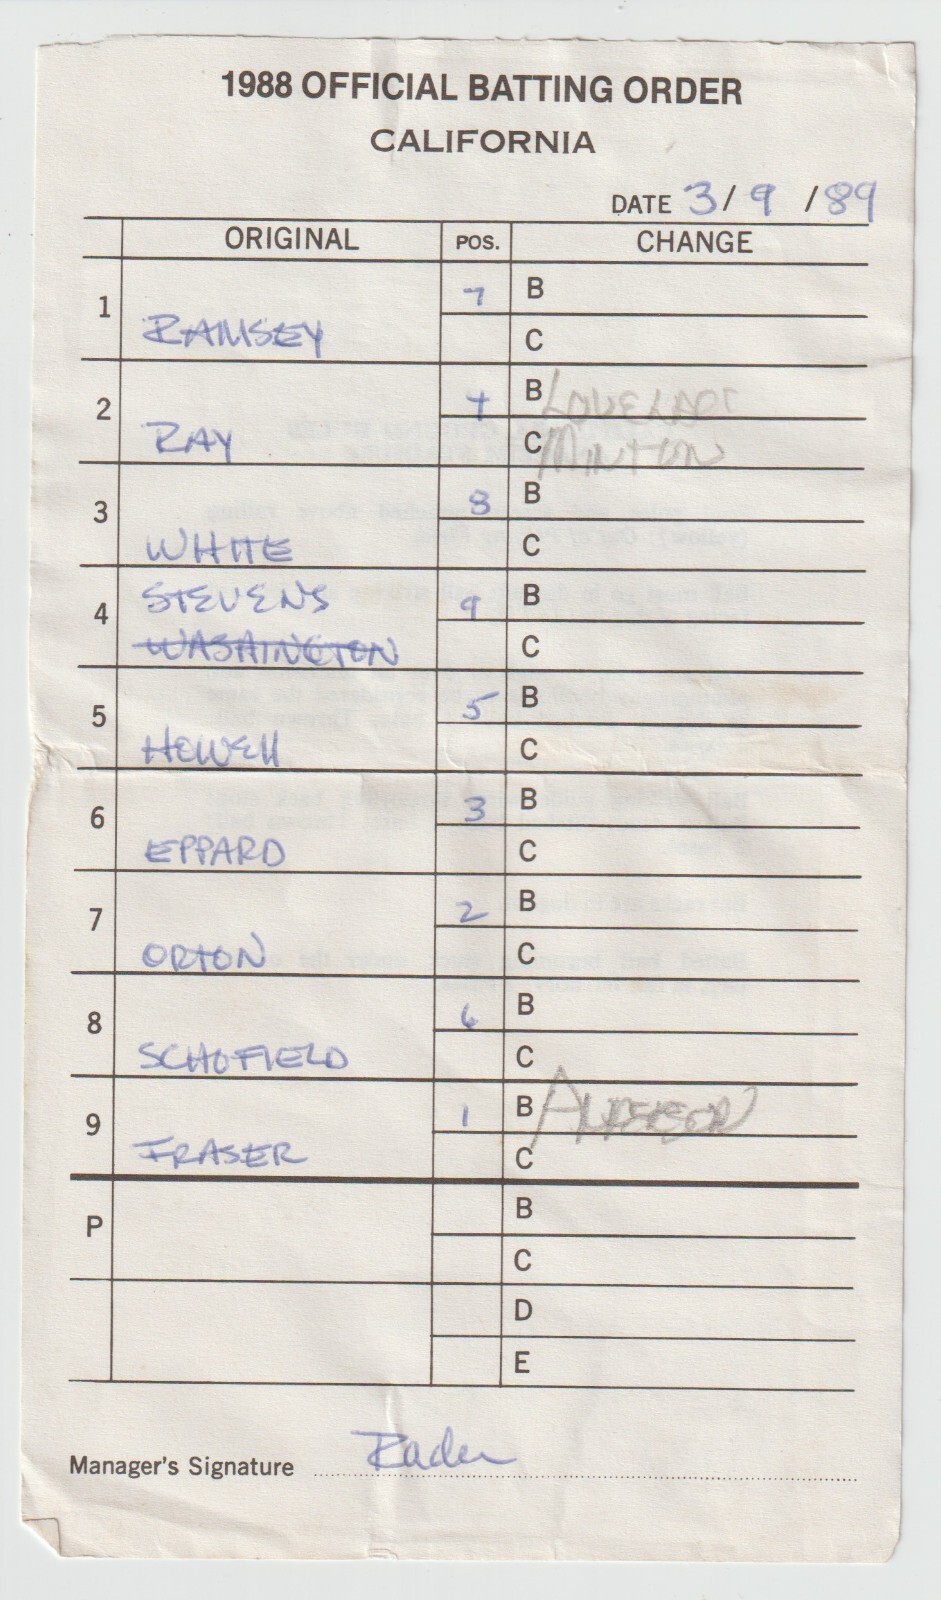 1988 OFFICIAL BATTING ORDER
CALIFORNIA
DATE 3/ 9 /89
ORIGINAL POS. CHANGE
1 RAMSEY 7 B
C
2 RAY 4 B LOVELACE
C MINTON
3 WHITE 8 B
C
4 STEVENS 9 B
WASHINGTON C
5 HOWELL 5 B
C
6 EPPARD 3 B
C
7 ORTON 2 B
C
8 SCHOFIELD 6 B
C
9 FRASER 1 B ANDERSON
C
P B
C
D
E
Manager's Signature Rader